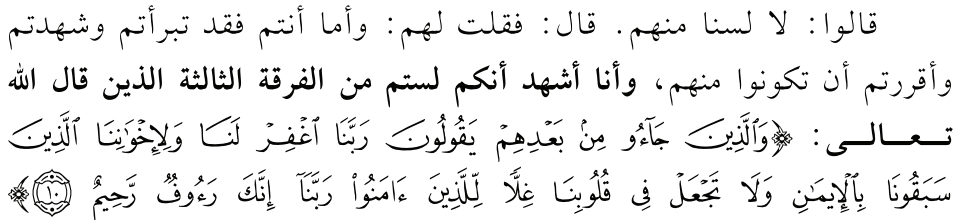 قالوا: لا لسنا منهم. قال: فقلت لهم: وأما أنتم فقد تبرأتم وشهدتم
وأقررتم أن تكونوا منهم، وأنا أشهد أنكم لستم من الفرقة الثالثة الذين قال الله
تعالى: ﴿وَٱلَّذِينَ جَآءُو مِنۢ بَعۡدِهِمۡ يَقُولُونَ رَبَّنَا ٱغۡفِرۡ لَنَا وَلِإِخۡوَٰنِنَا ٱلَّذِينَ
سَبَقُونَا بِٱلۡإِيمَٰنِ وَلَا تَجۡعَلۡ فِي قُلُوبِنَا غِلّٗا لِّلَّذِينَ ءَامَنُواْ رَبَّنَآ إِنَّكَ رَءُوفٞ رَّحِيمٌ ١٠﴾